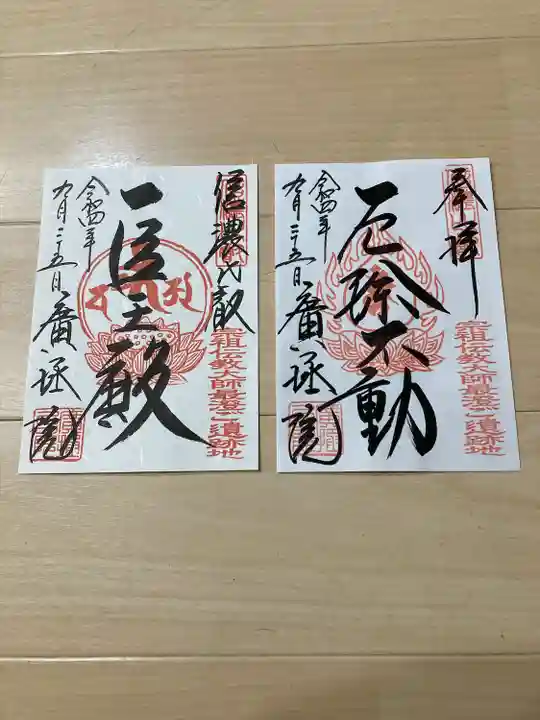 奉拝
宗祖伝教大師最澄 遺跡地
厄除不動
令和四年
九月二十五日
廣拯院
信濃比叡
宗祖伝教大師最澄 遺跡地
医王殿
令和四年
九月二十五日
廣拯院